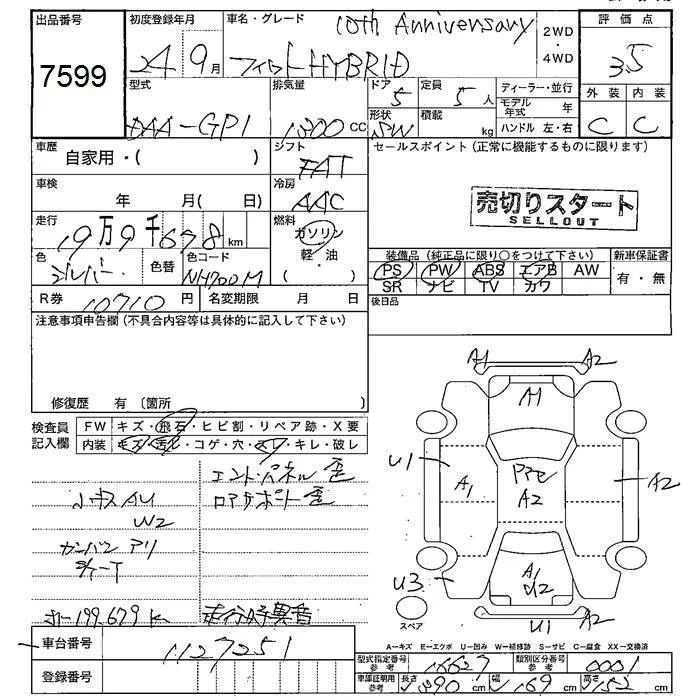 出品番号 初度登録年月 車名・グレード 10th Anniversary 2WD ・ 4WD 評価点
7599 24年9月 フィットHYBRID 3.5
型式 排気量 ドア 5 定員 5人 ディーラー・並行 外装 内装
DAA-GP1 1300cc 形状 SW 積載 kg モデル年式 年 C C
ハンドル 左・右
車歴 自家用・( ) シフト FAT セールスポイント(正常に機能するものに限ります)
車検 年 月( 日) 冷房 AAC
売切りスタート
SELLOUT
走行 19万9千678km 燃料 ガソリン 軽油 ・ ( )
色 シルバー 色替 色コード NH700M
装備品(純正品に限り○をつけて下さい) 新車保証書
PS PW ABS エアB AW 有・無
SR ナビ TV カワ
R券 10710円 名変期限 月 日 後日品
注意事項申告欄(不具合内容等は具体的に記入して下さい)
修復歴 有(箇所 )
検査員記入欄 FW キズ・飛石・ヒビ割・リペア跡・X要
内装 キズ・汚レ・コゲ・穴・スレ・キレ・破レ
エンドパネル歪
小キズAU ロアサポート歪
W2
カンバン アリ
シート
オー199.679K 走行時異音
A1 A2
A1
U1 A1 A2 A2
A1
U3 U2
スペア U1 A2
A=キズ E=エクボ U=凹み W=補修跡 S=サビ C=腐食 XX=交換済
車台番号 1127251
登録番号
型式指定番号 参考 16627 類別区分番号 参考 0001
車庫証明用 参考 長さ 390cm 幅 169cm 高さ 152cm